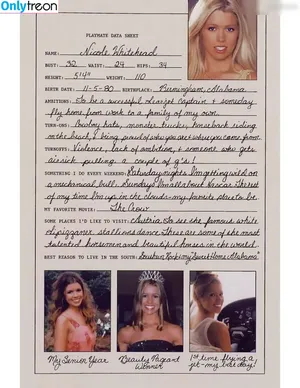 Onlytreon
PLAYMATE DATA SHEET
NAME: Nicole Whitehead
BUST: 32 WAIST: 24 HIPS: 34
HEIGHT: 5'4" WEIGHT: 110
BIRTH DATE: 11-5-80 BIRTHPLACE: Birmingham, Alabama
AMBITIONS: To be a successful Learjet captain & someday
fly home from work to a family of my own.
TURN-ONS: Cowboy hats, monster trucks, horseback riding
on the beach, & being proud of who you are & where you come from.
TURNOFFS: Violence, lack of ambition, & someone who gets
airsick pulling a couple of g's!
SOMETHING I DO EVERY WEEKEND: Saturday nights I'm getting wild on
a mechanical bull. Sundays I'm all about Nascar. The rest
of my time I'm up in the clouds-my favorite place to be.
MY FAVORITE MOVIE: The Crow
SOME PLACES I'D LIKE TO VISIT: Austria. To see the famous white
Lipizzaner stallions dance. These are some of the most
talented horsemen and beautiful horses in the world.
BEST REASON TO LIVE IN THE SOUTH: Southern Rock in my "Sweet Home Alabama"
My Senior Year
Beauty Pageant
Winner
1st time flying a
jet-my 21st bday!